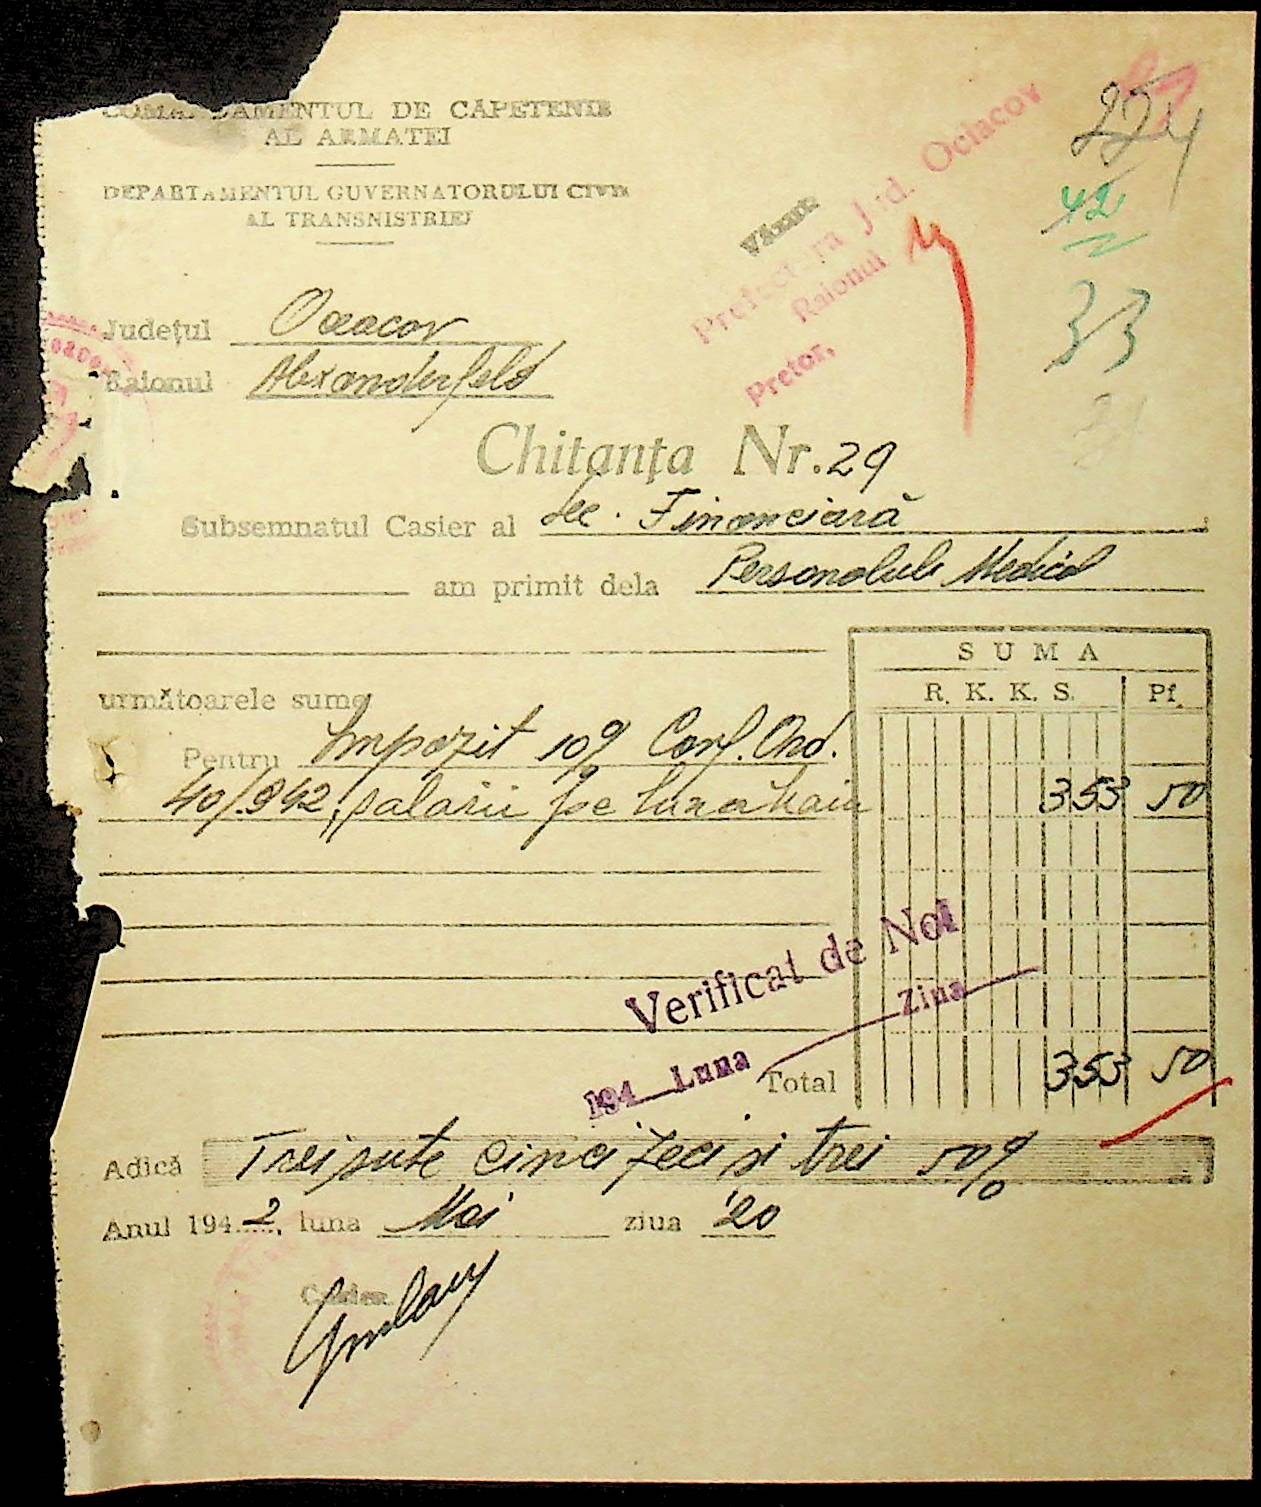 COMANDAMENTUL DE CAPETENIE
AL ARMATEI
DEPARTAMENTUL GUVERNATORULUI CIVIL
AL TRANSNISTRIEI
224
42
33
Văzut
Prefectura Jud. Ociacov
Raionul
Pretor,
Județul Oceacov
Raionul Alexanderfeld
Chitanța Nr. 29
Subsemnatul Casier al Sec. Financiară
am primit dela Personalul Medical
următoarele sume
SUMA
R. K. K. S. Pf.
Pentru Impozit 10% Conf. Ord.
40/942, salarii pe luna Maiu 353 50
Verificat de Noi
194 Luna Ziua
Total 353 50
Adică Trei sute cinci zeci și trei 50%
Anul 1942, luna Mai ziua 20
Casier